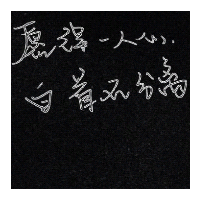 愿得一人心.
白首不分离